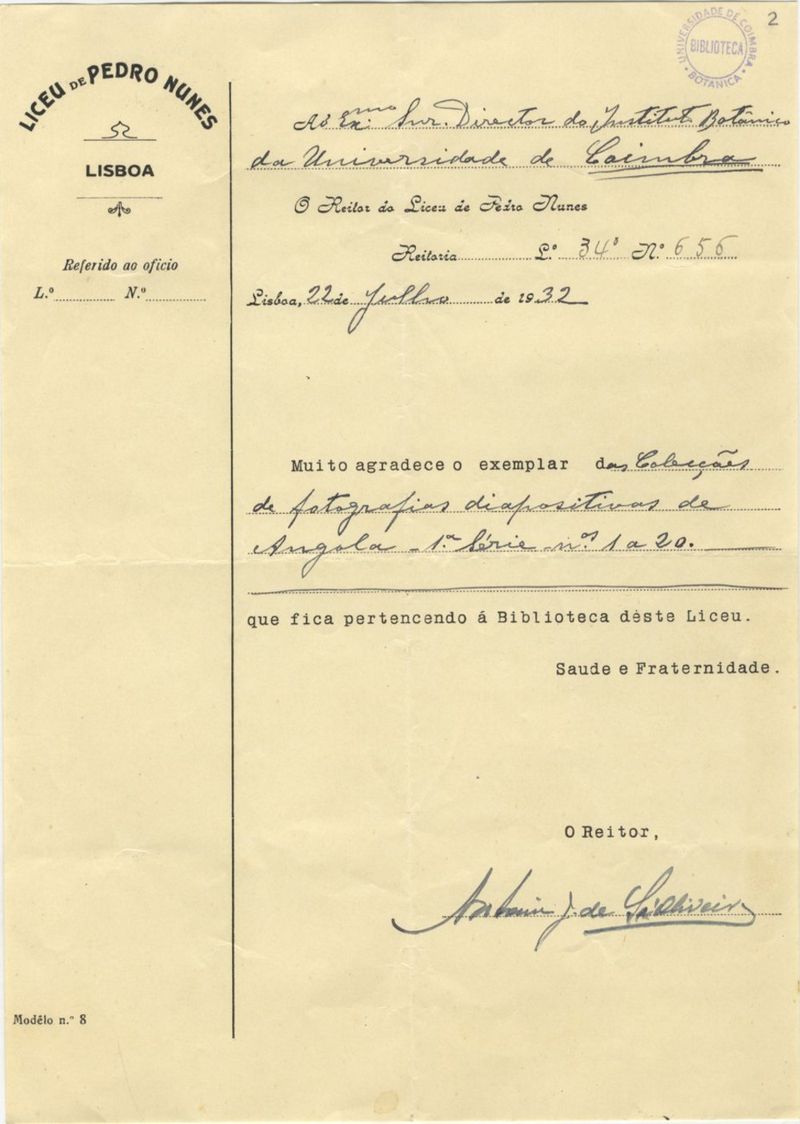 2
UNIVERSIDADE DE COIMBRA
BIBLIOTECA
BOTANICA
LICEU DE PEDRO NUNES
LISBOA
Referido ao oficio
L.º N.º
Ao Exmo. Snr. Director do Instituto Botânico
da Universidade de Coimbra
O Reitor do Liceu de Pedro Nunes
Reitoria L.º 34º N.º 656
Lisboa, 22 de Julho de 1932
Muito agradece o exemplar das Colecções
de fotografias diapositivas de
Angola - 1.ª Série - nos 1 a 20.
que fica pertencendo á Biblioteca déste Liceu.
Saude e Fraternidade.
O Reitor,
António J. de Sá Oliveira
Modêlo n.º 8